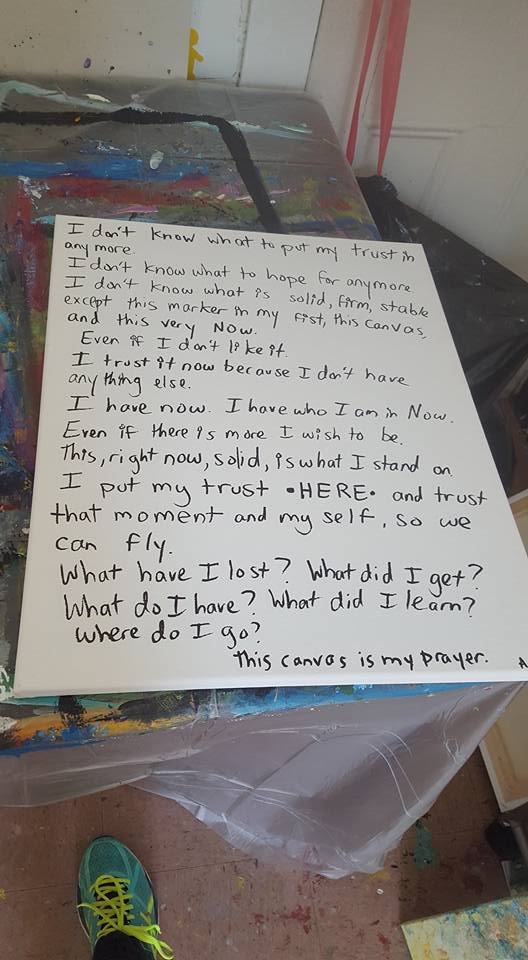 I don't know what to put my trust in
any more.
I don't know what to hope for anymore
I don't know what is solid, firm, stable
except this marker in my fist, this canvas,
and this very Now.
Even if I don't like it.
I trust it now because I don't have
any thing else.
I have now. I have who I am in Now.
Even if there is more I wish to be.
This, right now, solid, is what I stand on
I put my trust •HERE• and trust
that moment and my self, so we
can fly.
What have I lost? What did I get?
What do I have? What did I learn?
where do I go?
This canvas is my prayer.
A